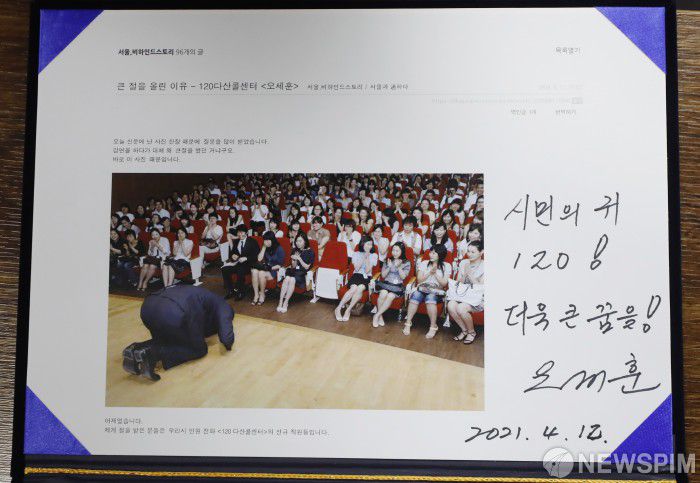 서울,비하인드스토리 96개의 글
목록열기
큰 절을 올린 이유 - 120다산콜센터 <오세훈>
서울,비하인드스토리 / 서울과 通하다
오늘 신문에 난 사진 한장 때문에 질문을 많이 받았습니다.
강연을 하다가 대체 왜 큰절을 했던 거냐구요.
바로 이 사진 때문입니다.
시민의 귀
120!
더욱 큰 꿈을!
오세훈
2021. 4. 12.
어제였습니다.
제게 절을 받은 분들은 우리시 민원 전화 <120 다산콜센터>의 신규 직원들입니다.
NEWSPIM